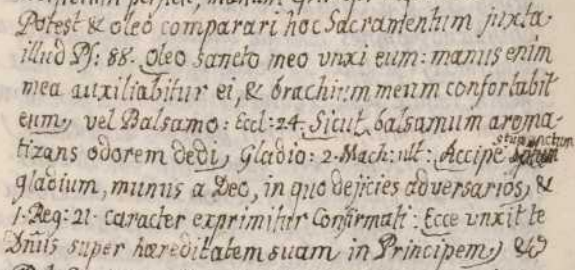 Potest & oleo comparari hoc Sacramentum juxta
illud Ps: 88. Oleo sancto meo vnxi eum: manus enim
mea auxiliabitur ei, & brachium meum confortabit
eum, vel Balsamo: Eccl: 24. Sicut balsamum aroma-
tizans odorem dedi, Gladio: 2. Mach: ult: Accipe sanctum
gladium, munus a Deo, in quo dejicies adversarios, &
1. Reg: 21. caracter exprimitur Confirmati: Ecce vnxit te
Dnus super hæreditatem suam in Principem, &